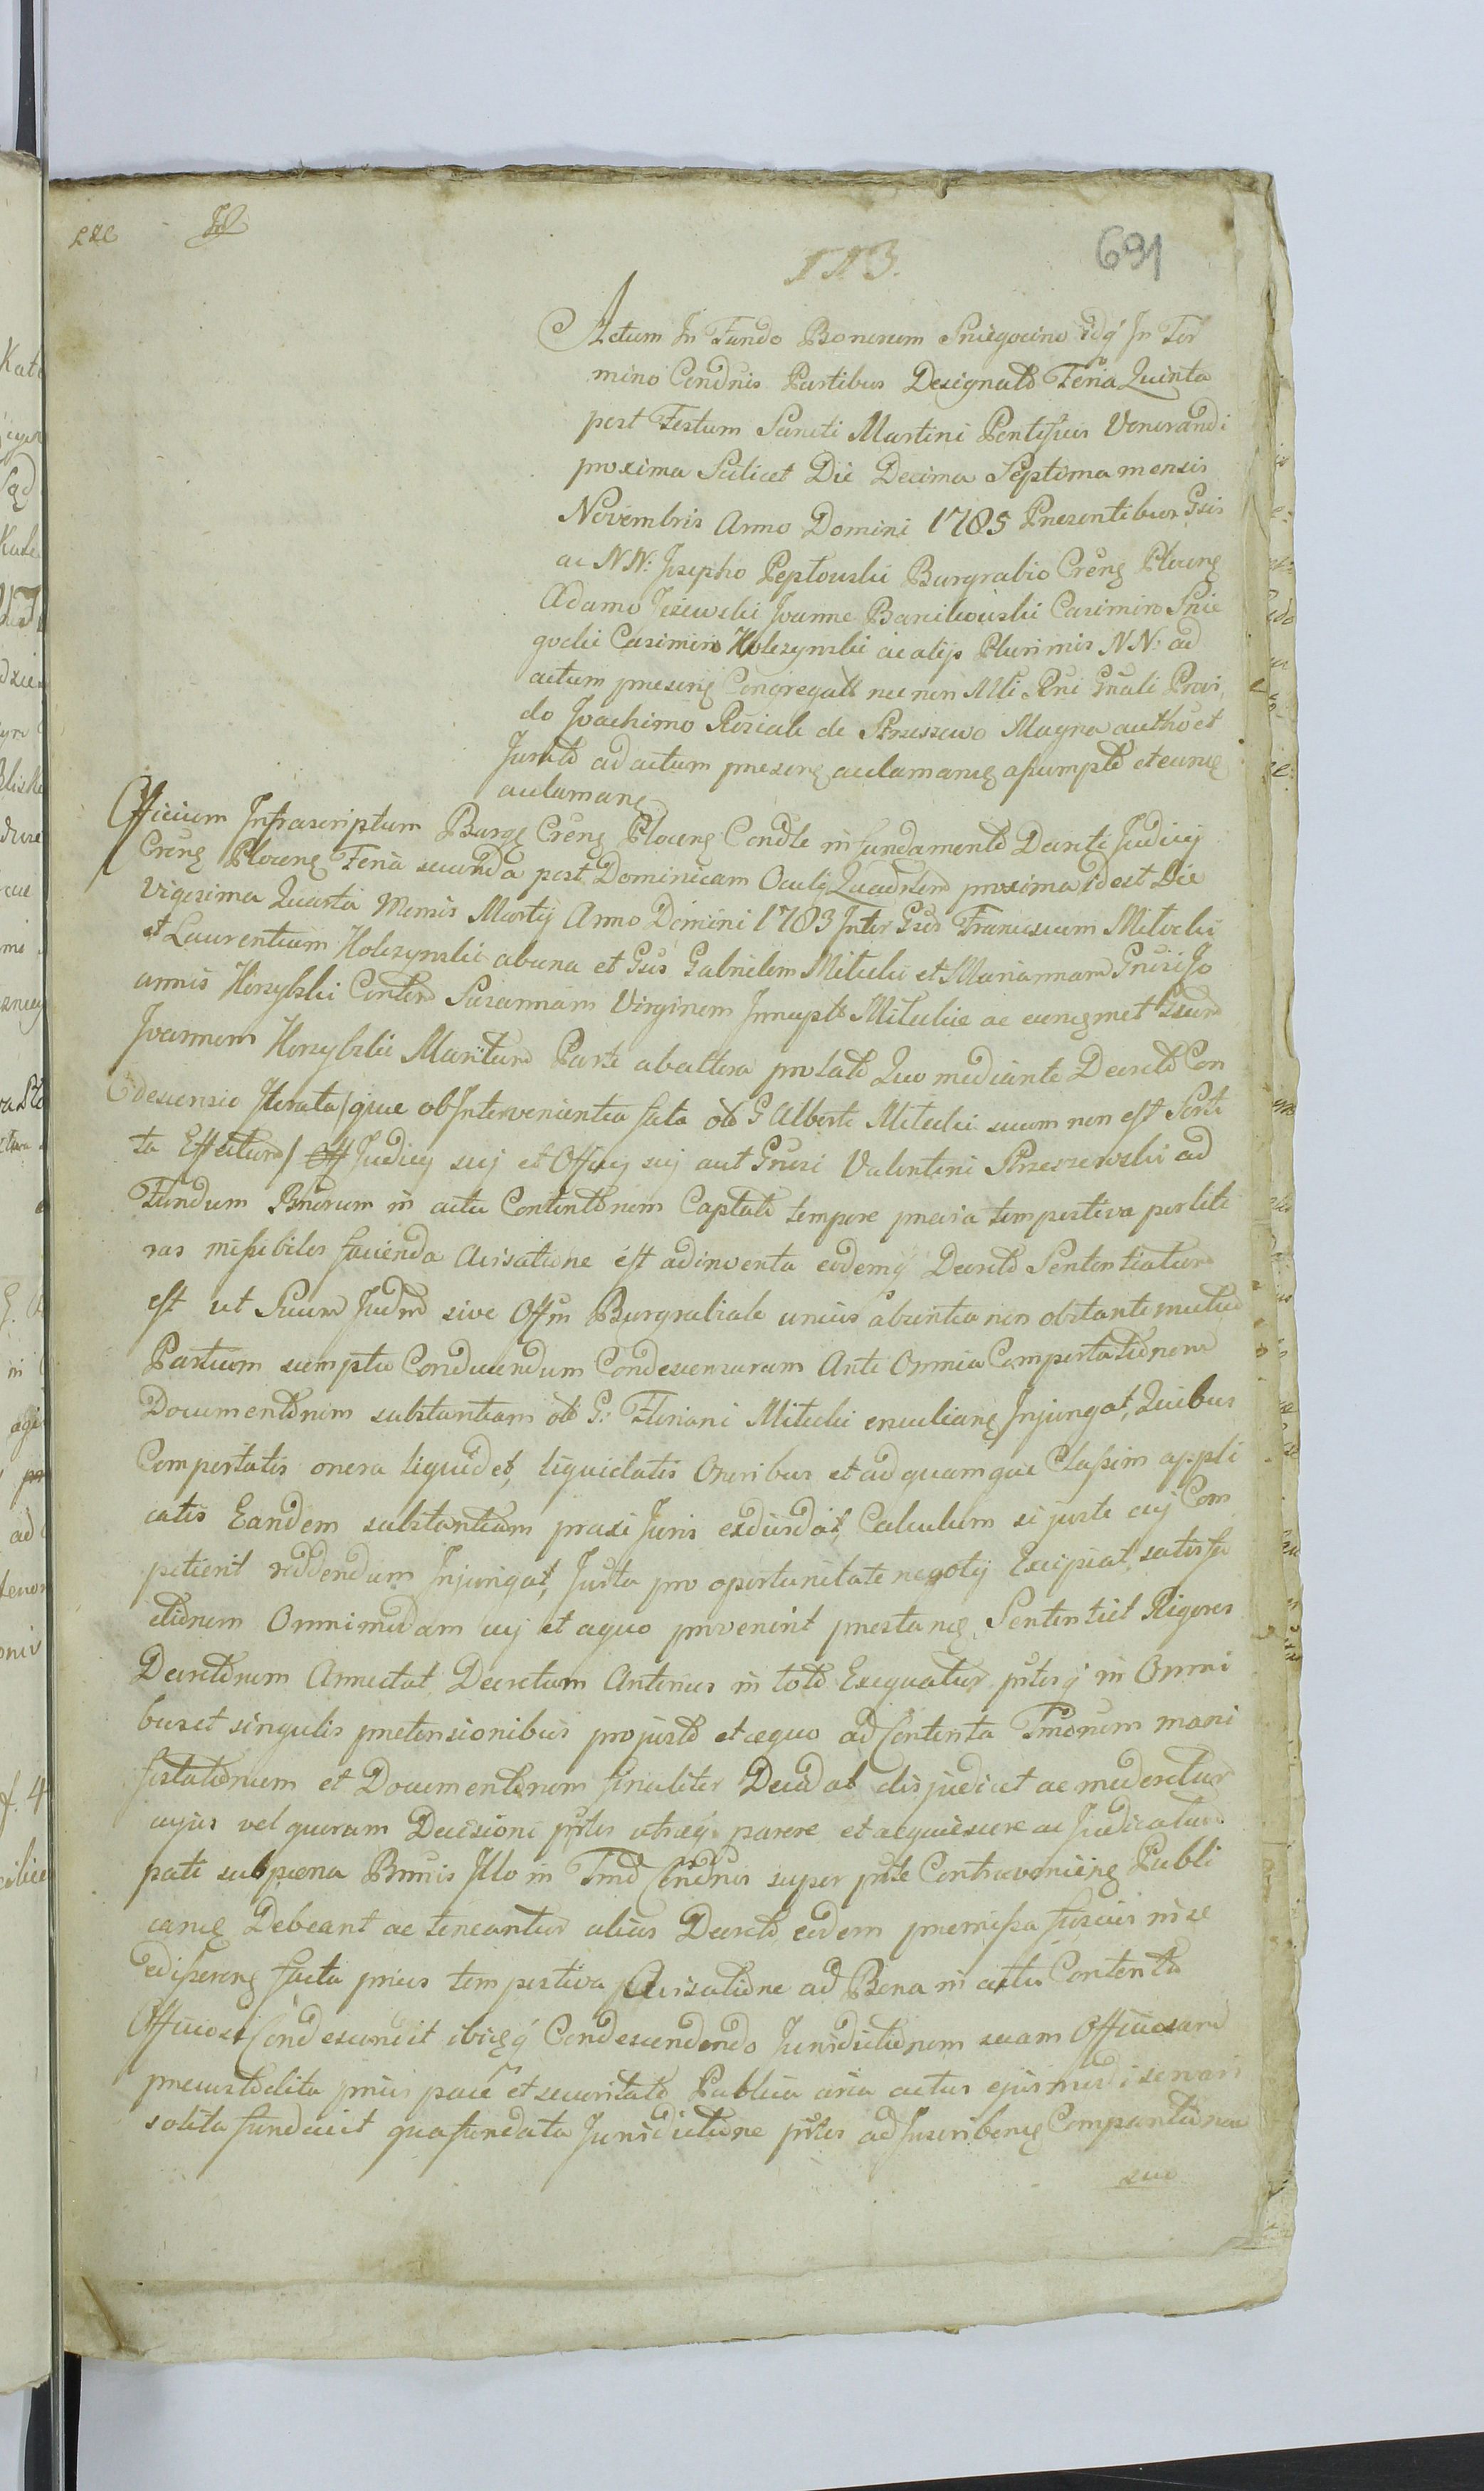 113.
691
Actum In Fundo Bonorum Sniegocino idq̃ In Ter
mino Condnis Partibus Designato Feria Quinta
post Festum Sancti Martini Pontificis Venerandi
proxima Scilicet Die Decima Septima mensis
Novembris Anno Domini 1785 Presentibus Gsis
ac NN: Josepho Peptowski Burgrabio Creng Ploceng
Adamo Jeżewski Joanne Bonikowski Casimiro Snie
gocki Casimiro Kolczynski ac alijs Plurimis NN: ad
actum preseng Congregatis nec non Mli Rni Gnali Provi
do Joachimo Roziak de Strusewo Magna autho et
Jurato ad actum preseng aclamang assumpto et eung
aclamang
Officium Infrascriptum Burgg Creng Ploceng Condle in fundamento Decreti Judicij
Creng Ploceng Feria secunda post Dominicam Oculi Quadrlem proxima idest Die
Vigesima Quarta Mensis Martij Anno Domini 1783 Inter Gsos Franciscum Miłocki
et Laurentium Kolczynski ab una et Gsos Gabrielem Milecki et Mariannam Gnosi Jo
annis Konzylski Contem Susannam Virginem Innupta Miteckie ac eungmet Gsum
Joannem Konzylski Maritum Parte ab altera prolato Quo mediante Decreto Con
descensio Iterata /que ob Intervenientia fata olo G Alberti Mitecki suum non est Sorti
ta Effectum/ Judicij suj et Officij suj aut Gnosi Valentini Strzeszewski ad
Fundum Bnorum in actu Contentorum Captato tempore previa tempestiva per litte
ras missibiles facienda Avisatione est adinventa eodemq̃ Decreto Sententiatum
est ut Suum Judm sive Offm Burgrabiale unius absentia non obstante mutuo
Partium sumptu Conducendum Condescensurum Ante Omnia Comportationem
Documentorum substantiam olo G: Floriani Mitecki Injungat, Quibus
Comportatis onera liquidet, liquidatis Oneribus et ad quamque Classim appli
catis Eandem substantiam praxi Juris exdividat, Calculum si juste cuj Com
petierit reddendum Injungat, Jurta pro oportunitate negotij Excipiat, satisfa
ctionem Omnimodam cuj et a quo provenerit prestang Sententiet Rigores
Decretorum Annectat Decretum Anterius in toto Exequatur ptesq̃ in Omni
bus et singulis pretensionibus pro justo et aequo ad Contenta Tmorum mani
festationum et Documentorum finaliter Decidat disjudicet ac moderetur
cujus vel quorum Decisioni ptes utraeq̃ parere et acquiescere ac Judicatum
pati sub poena Bnnis Illo in Tmo Condnis super pte Contraveniēng Publi
cang Debeant ac teneantur alias Decreto eodem premissa fusius in se
edisereng facta prius tempestiva Avisatione ad Bona in actu Contenta
Officiose Condescendit ibiq̃q̃ Condescendendo Jurisdictionem suam Officiosam
precustodita prius pace et securitate Publica circa actus ejusmodi servari
solita fundavit qua fundata Jurisdictione ptes ad Inscribeng Comparitionem
sua